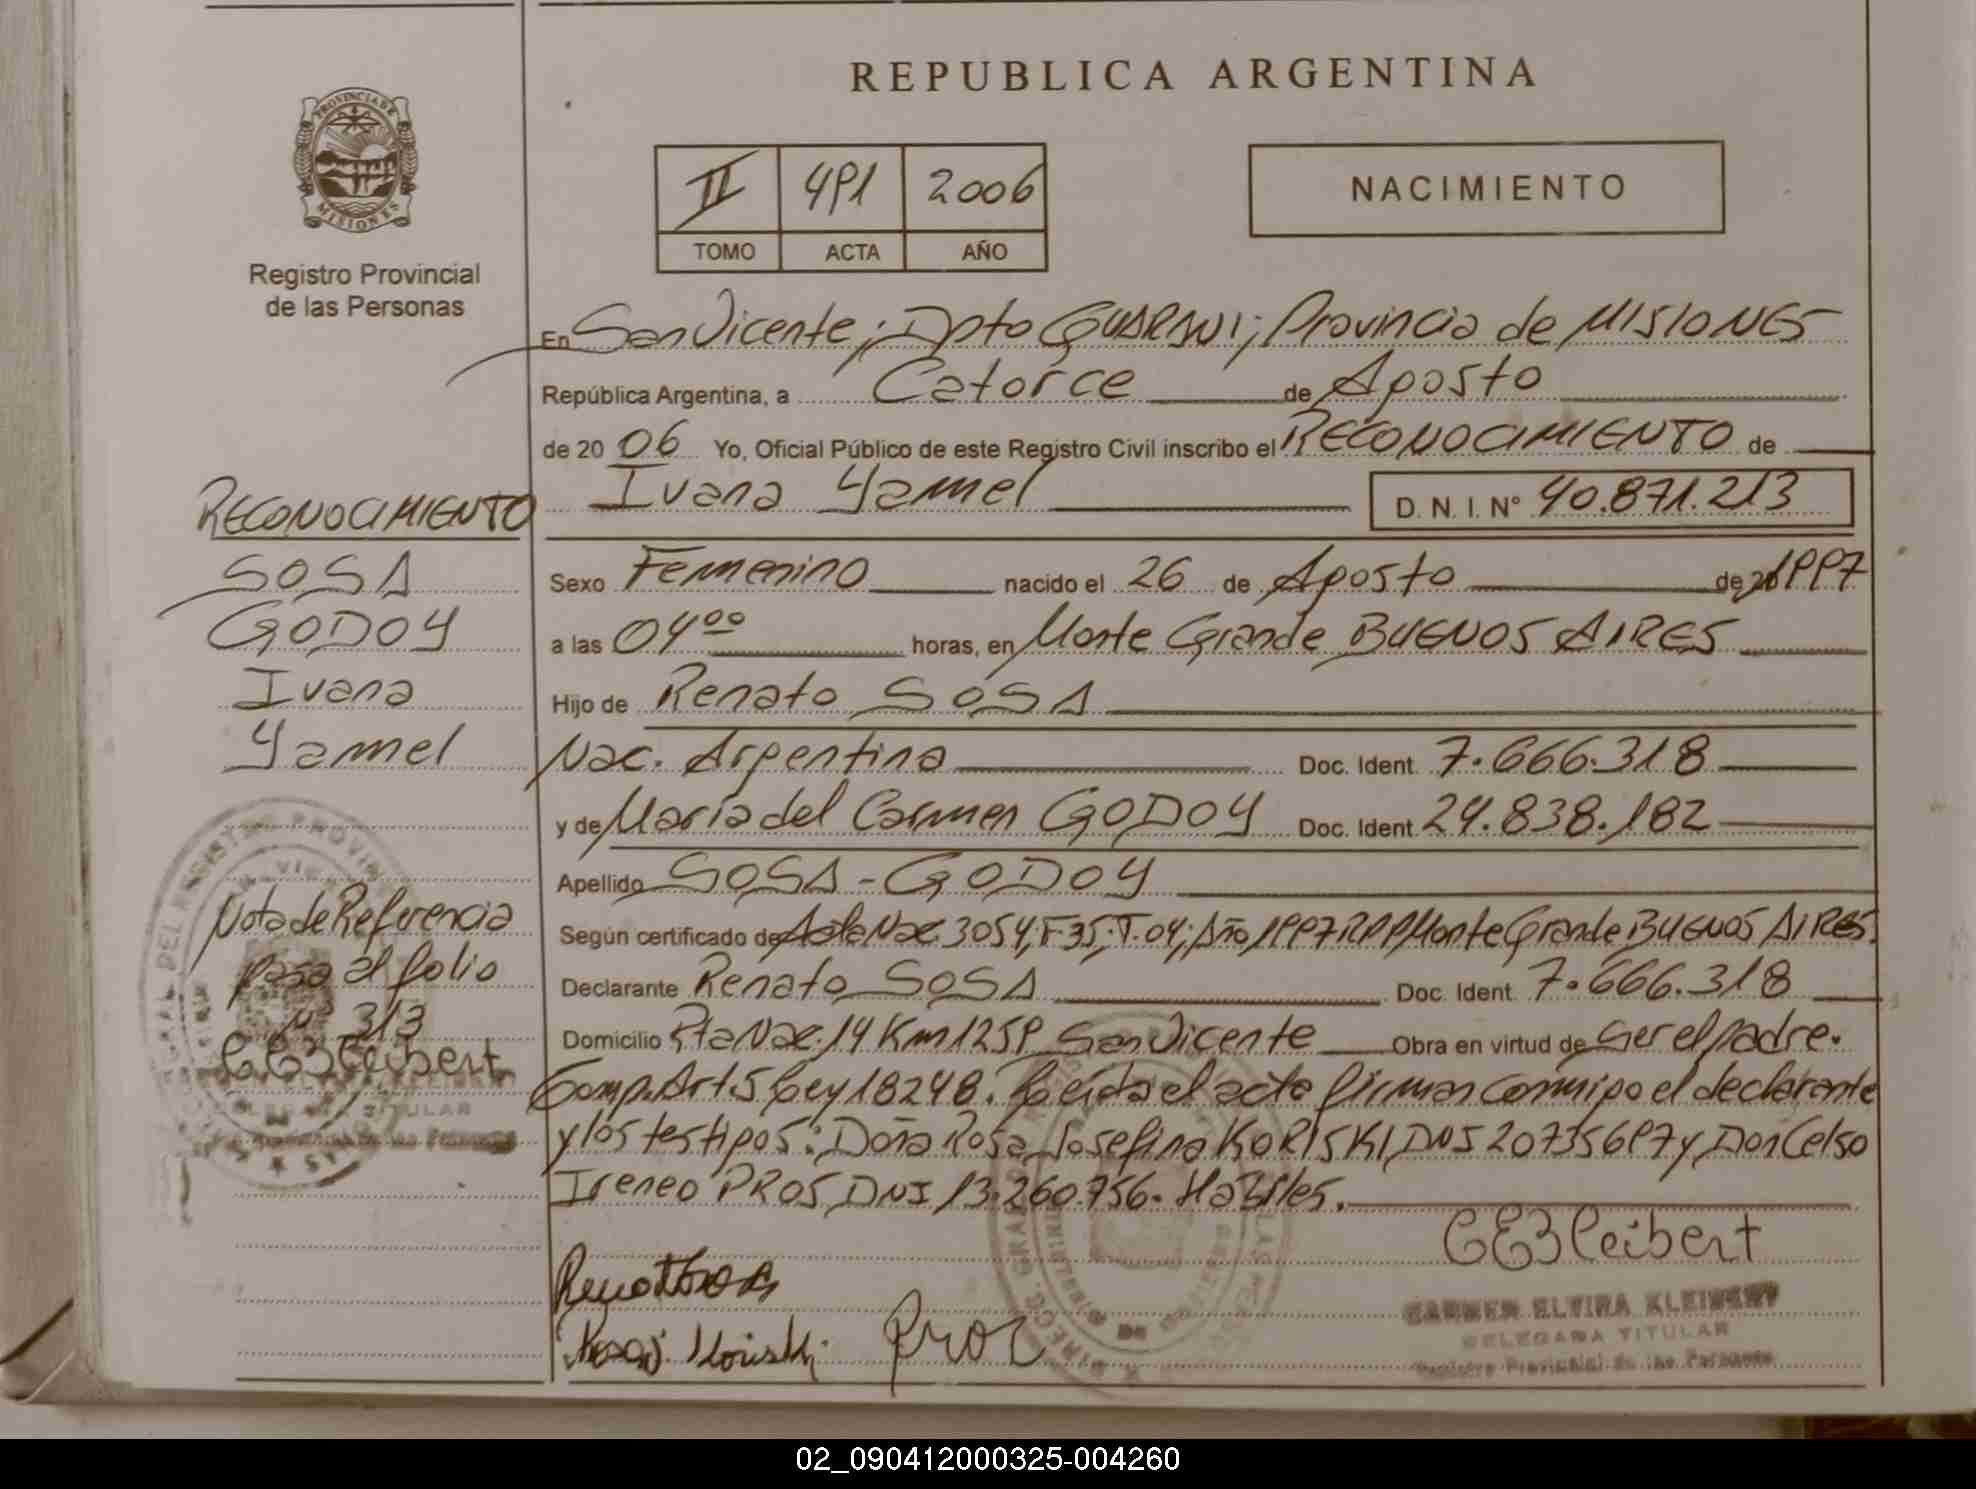 REPUBLICA ARGENTINA
PROVINCIA DE
MISIONES
Registro Provincial
de las Personas
II 491 2006
TOMO ACTA AÑO
NACIMIENTO
En San Vicente; Dpto GUARANI; Provincia de MISIONES
República Argentina, a Catorce de Agosto
de 20 06 Yo, Oficial Público de este Registro Civil inscribo el RECONOCIMIENTO de
Ivana Yamel D. N. I. Nº 40.871.213
Sexo Femenino nacido el 26 de Agosto de 1997
a las 04 00 horas, en Monte Grande BUENOS AIRES
Hijo de Renato SOSA
Nac. Argentina Doc. Ident. 7.666.318
y de María del Carmen GODOY Doc. Ident. 24.838.182
Apellido SOSA - GODOY
Según certificado de Acta Nac. 3054; F-35; T. 04; Año 1997 RPP Monte Grande BUENOS AIRES.
Declarante Renato SOSA Doc. Ident. 7.666.318
Domicilio Rta Nac. 14 Km 1259 San Vicente Obra en virtud de ser el padre.
Comp. Art 5 Ley 18248. Leída el acta firman conmigo el declarante
y los testigos: Doña Rosa Josefina KORISKI DNI 20735697 y Don Celso
Ireneo PROS DNI 13.260.756. Hábiles.
RECONOCIMIENTO
SOSA
GODOY
Ivana
Yamel
Nota de Referencia
pasa al folio
Nº 313
CEKleibert
DELEGADA TITULAR
CEKleibert
CARMEN ELVIRA KLEIBERT
DELEGADA TITULAR
Registro Provincial de las Personas
Renato Sosa
Pros
02_090412000325-004260